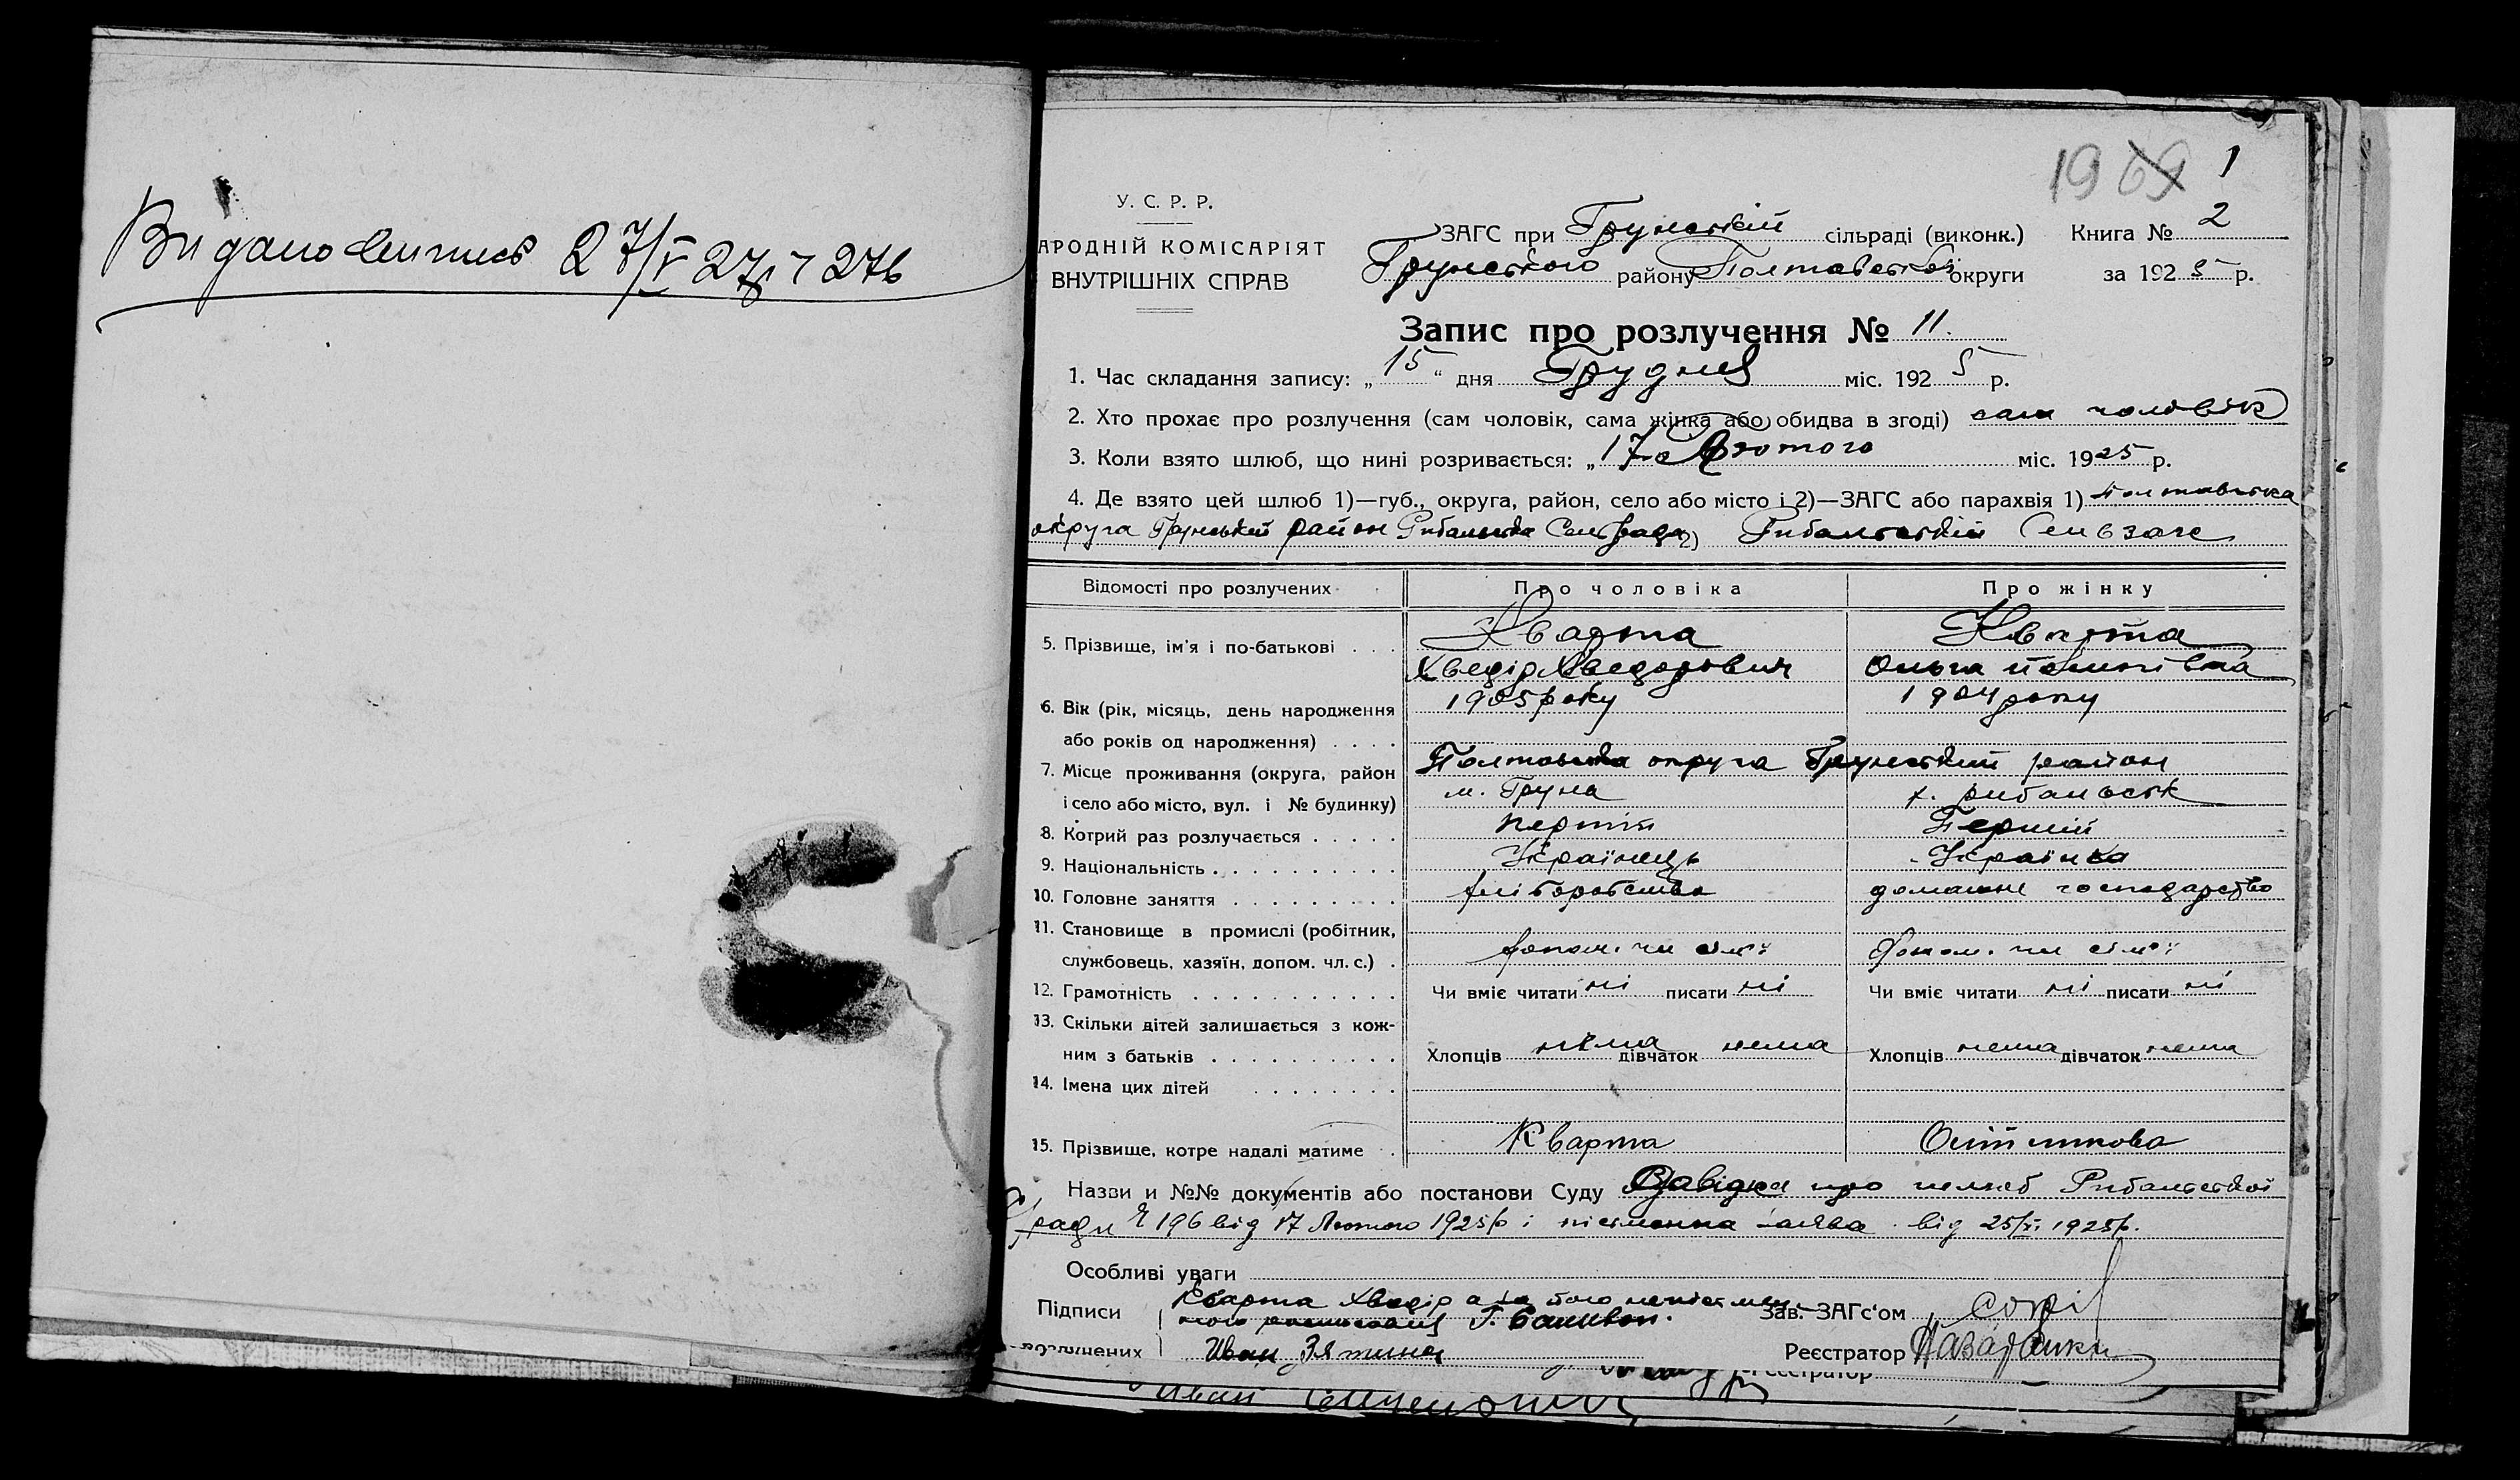 Видано 27/V 27 р 276
1969 1
У. С. Р. Р.
АРОДНІЙ КОМІСАРІЯТ
ВНУТРІШНІХ СПРАВ
ЗАГС при Грунській сільраді (виконк.) Книга № 2
Грунського району Полтавської округи за 1925 р.
Запис про розлучення № 11.
1. Час складання запису: „15“ дня Грудня міс. 1925 р.
2. Хто прохає про розлучення (сам чоловік, сама жінка або обидва в згоді) сам чоловік
3. Коли взято шлюб, що нині розривається: „17 Лютого міс. 1925 р.
4. Де взято цей шлюб 1)—губ., округа, район, село або місто і 2)—ЗАГС або парахвія 1) Полтавська
округа Грунський район Рибальська 2) Рибальській
Відомості про розлучених Про чоловіка Про жінку
5. Прізвище, ім'я і по-батькові . . . Кварта Кварта
Хведір Хведорович Ольга
6. Вік (рік, місяць, день народження 1905 року 1904 року
або років од народження) . . . .
7. Місце проживання (округа, район Полтавська округа Грунський район
і село або місто, вул. і № будинку) м. Груна х. рибальськ
8. Котрий раз розлучається . . . . . перший Перший
9. Національність . . . . . . . . . . Українець Українка
10. Головне заняття . . . . . . . . . хліборобство домашнє господарство
11. Становище в промислі (робітник,
службовець, хазяїн, допом. чл. с.) . допом. чл сім'ї допом. чл сім'ї
12. Грамотність . . . . . . . . . . . Чи вміє читати ні писати ні Чи вміє читати ні писати ні
13. Скільки дітей залишається з кож-
ним з батьків . . . . . . . . . . Хлопців нема дівчаток нема Хлопців нема дівчаток нема
14. Імена цих дітей . . . . . . . .
15. Прізвище, котре надалі матиме . Кварта
Назви и №№ документів або постанови Суду Довідка про шлюб Рибальської
ради № 196 від 17 Лютого 1925 р і письменна заява від 25/XI 1925 р.
Особливі уваги
Підписи Кварта Хведір а за його неписьмен-
ного Зав. ЗАГс'ом
розлучених Иван Реєстратор
Реєстратор
Иван